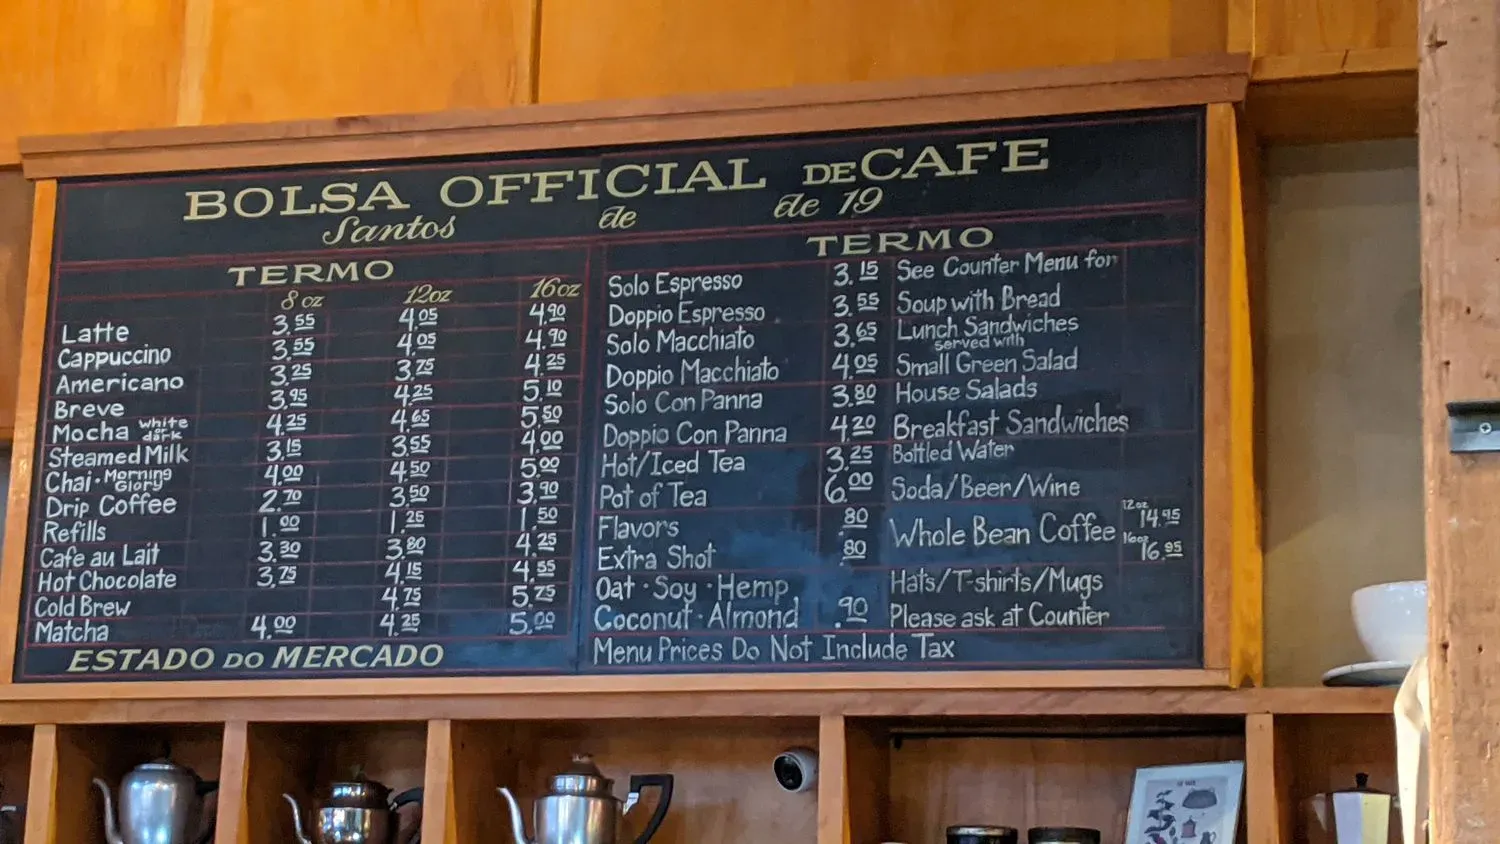 BOLSA OFFICIAL DE CAFE
Santos de de 19
TERMO
8 oz 12oz 16oz
Latte 3.55 4.05 4.90
Cappuccino 3.55 4.05 4.90
Americano 3.25 3.75 4.25
Breve 3.95 4.25 5.10
Mocha white dark 4.25 4.65 5.50
Steamed Milk 3.15 3.55 4.00
Chai · Morning Glory 4.00 4.50 5.00
Drip Coffee 2.70 3.50 3.90
Refills 1.00 1.25 1.50
Cafe au Lait 3.30 3.80 4.25
Hot Chocolate 3.75 4.15 4.55
Cold Brew 4.75 5.75
Matcha 4.00 4.25 5.00
ESTADO DO MERCADO
TERMO
Solo Espresso 3.15
Doppio Espresso 3.55
Solo Macchiato 3.65
Doppio Macchiato 4.05
Solo Con Panna 3.80
Doppio Con Panna 4.20
Hot/Iced Tea 3.25
Pot of Tea 6.00
Flavors .80
Extra Shot .80
Oat · Soy · Hemp,
Coconut · Almond .90
See Counter Menu for
Soup with Bread
Lunch Sandwiches
served with
Small Green Salad
House Salads
Breakfast Sandwiches
Bottled Water
Soda/Beer/Wine
Whole Bean Coffee 12oz 14.95
16oz 16.95
Hats/T-shirts/Mugs
Please ask at Counter
Menu Prices Do Not Include Tax